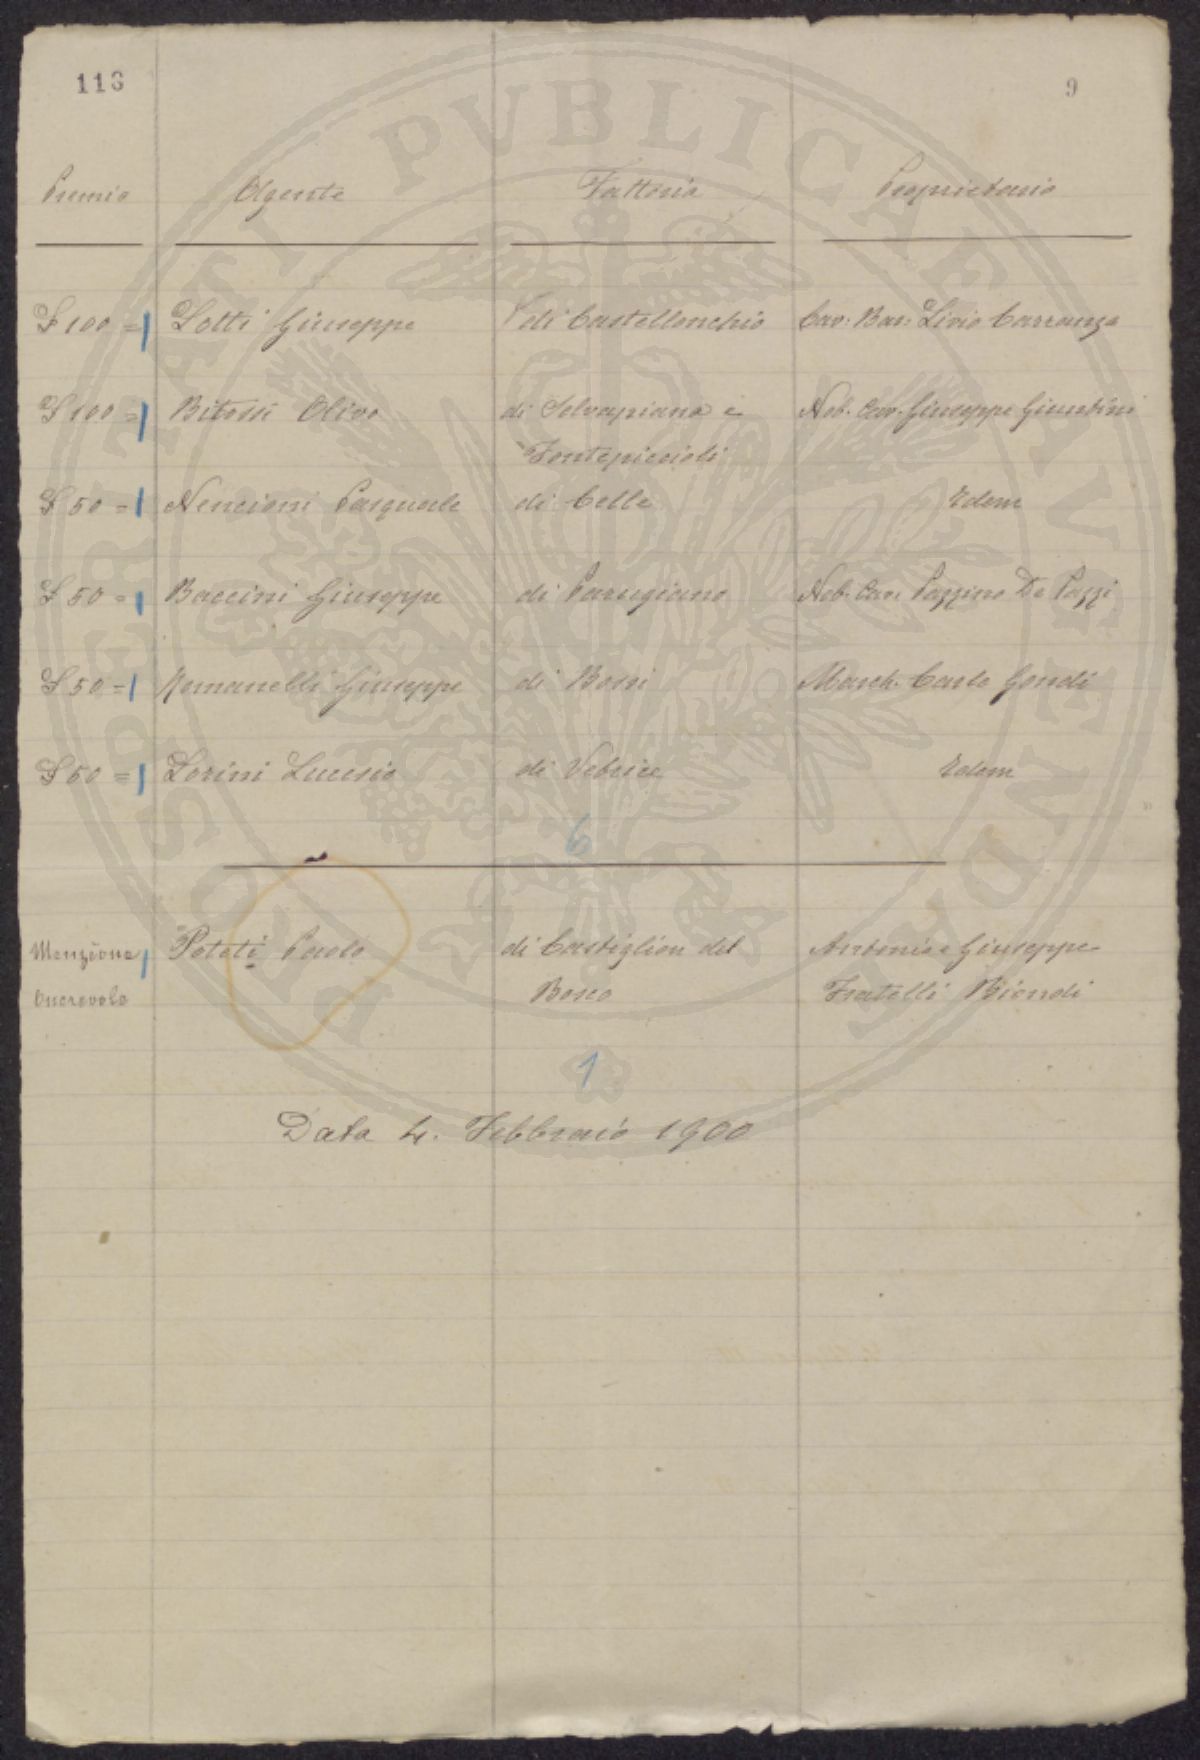 113 9
Premio Agente Fattoria Proprietario
£ 100 = Lotti Giuseppe di Castellonchio Cav: Bar: Livio Carranza
£ 100 = Bitossi Olivo di Selvapiana e Nob. Cav. Giuseppe Giuntini
Fontepiccioli
£ 50 = Nencioni Pasquale di Celle Idem
£ 50 = Baccini Giuseppe di Parugiano Nob. Cav. Pazzino De Pazzi
£ 50 = Romanelli Giuseppe di Bossi March. Carlo Gondi
£ 50 = Lorini Lucesio di Vetrice Idem
6
Menzione Poteti Paolo di Castiglion del Antonio e Giuseppe
Onorevole Bosco Fratelli Biondi
1
Data 4. Febbraio 1900
PROSPERITATI PUBLICAE AUGENDAE